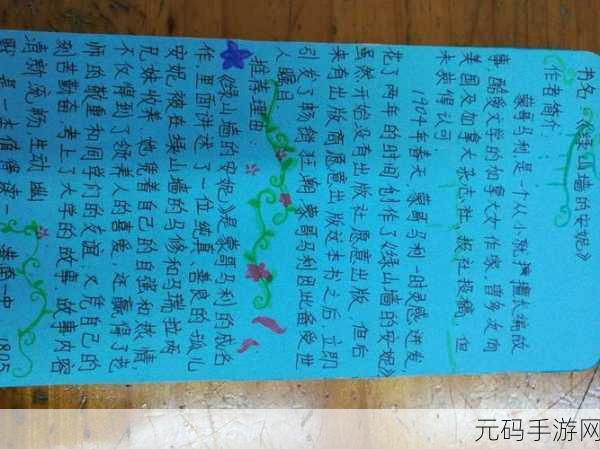 书名：《绿山墙的安妮》
作者简介：
蒙哥马利是一个从小就擅长编故
事、酷爱文学的加拿大女作家，曾多次向
美国及加拿大杂志社、报社投稿，但
未获得认可
1904年春天，蒙哥马利一时灵感迸发，
花了两年的时间创作了《绿山墙的安妮》
虽然开始没有出版社愿意出版，但后
来有出版商愿意出版这本书之后，立即
引发了畅销狂潮，蒙哥马利因此备受世
人瞩目
推荐理由：
《绿山墙的安妮》是蒙哥马利的成名
作，里面讲述了一位纯真、善良的孤儿
安妮被在绿山墙的马修和马瑞拉两
兄妹收养，她凭着自己的自强和热情，
不仅得到了领养人的喜爱，还赢得了老
师的敬重和同学们的友谊，又凭自己的
刻苦勤奋考上了大学的故事。故事内容
清新流畅、生动幽
默，是一本值得读一
一中 1805
元码手游网